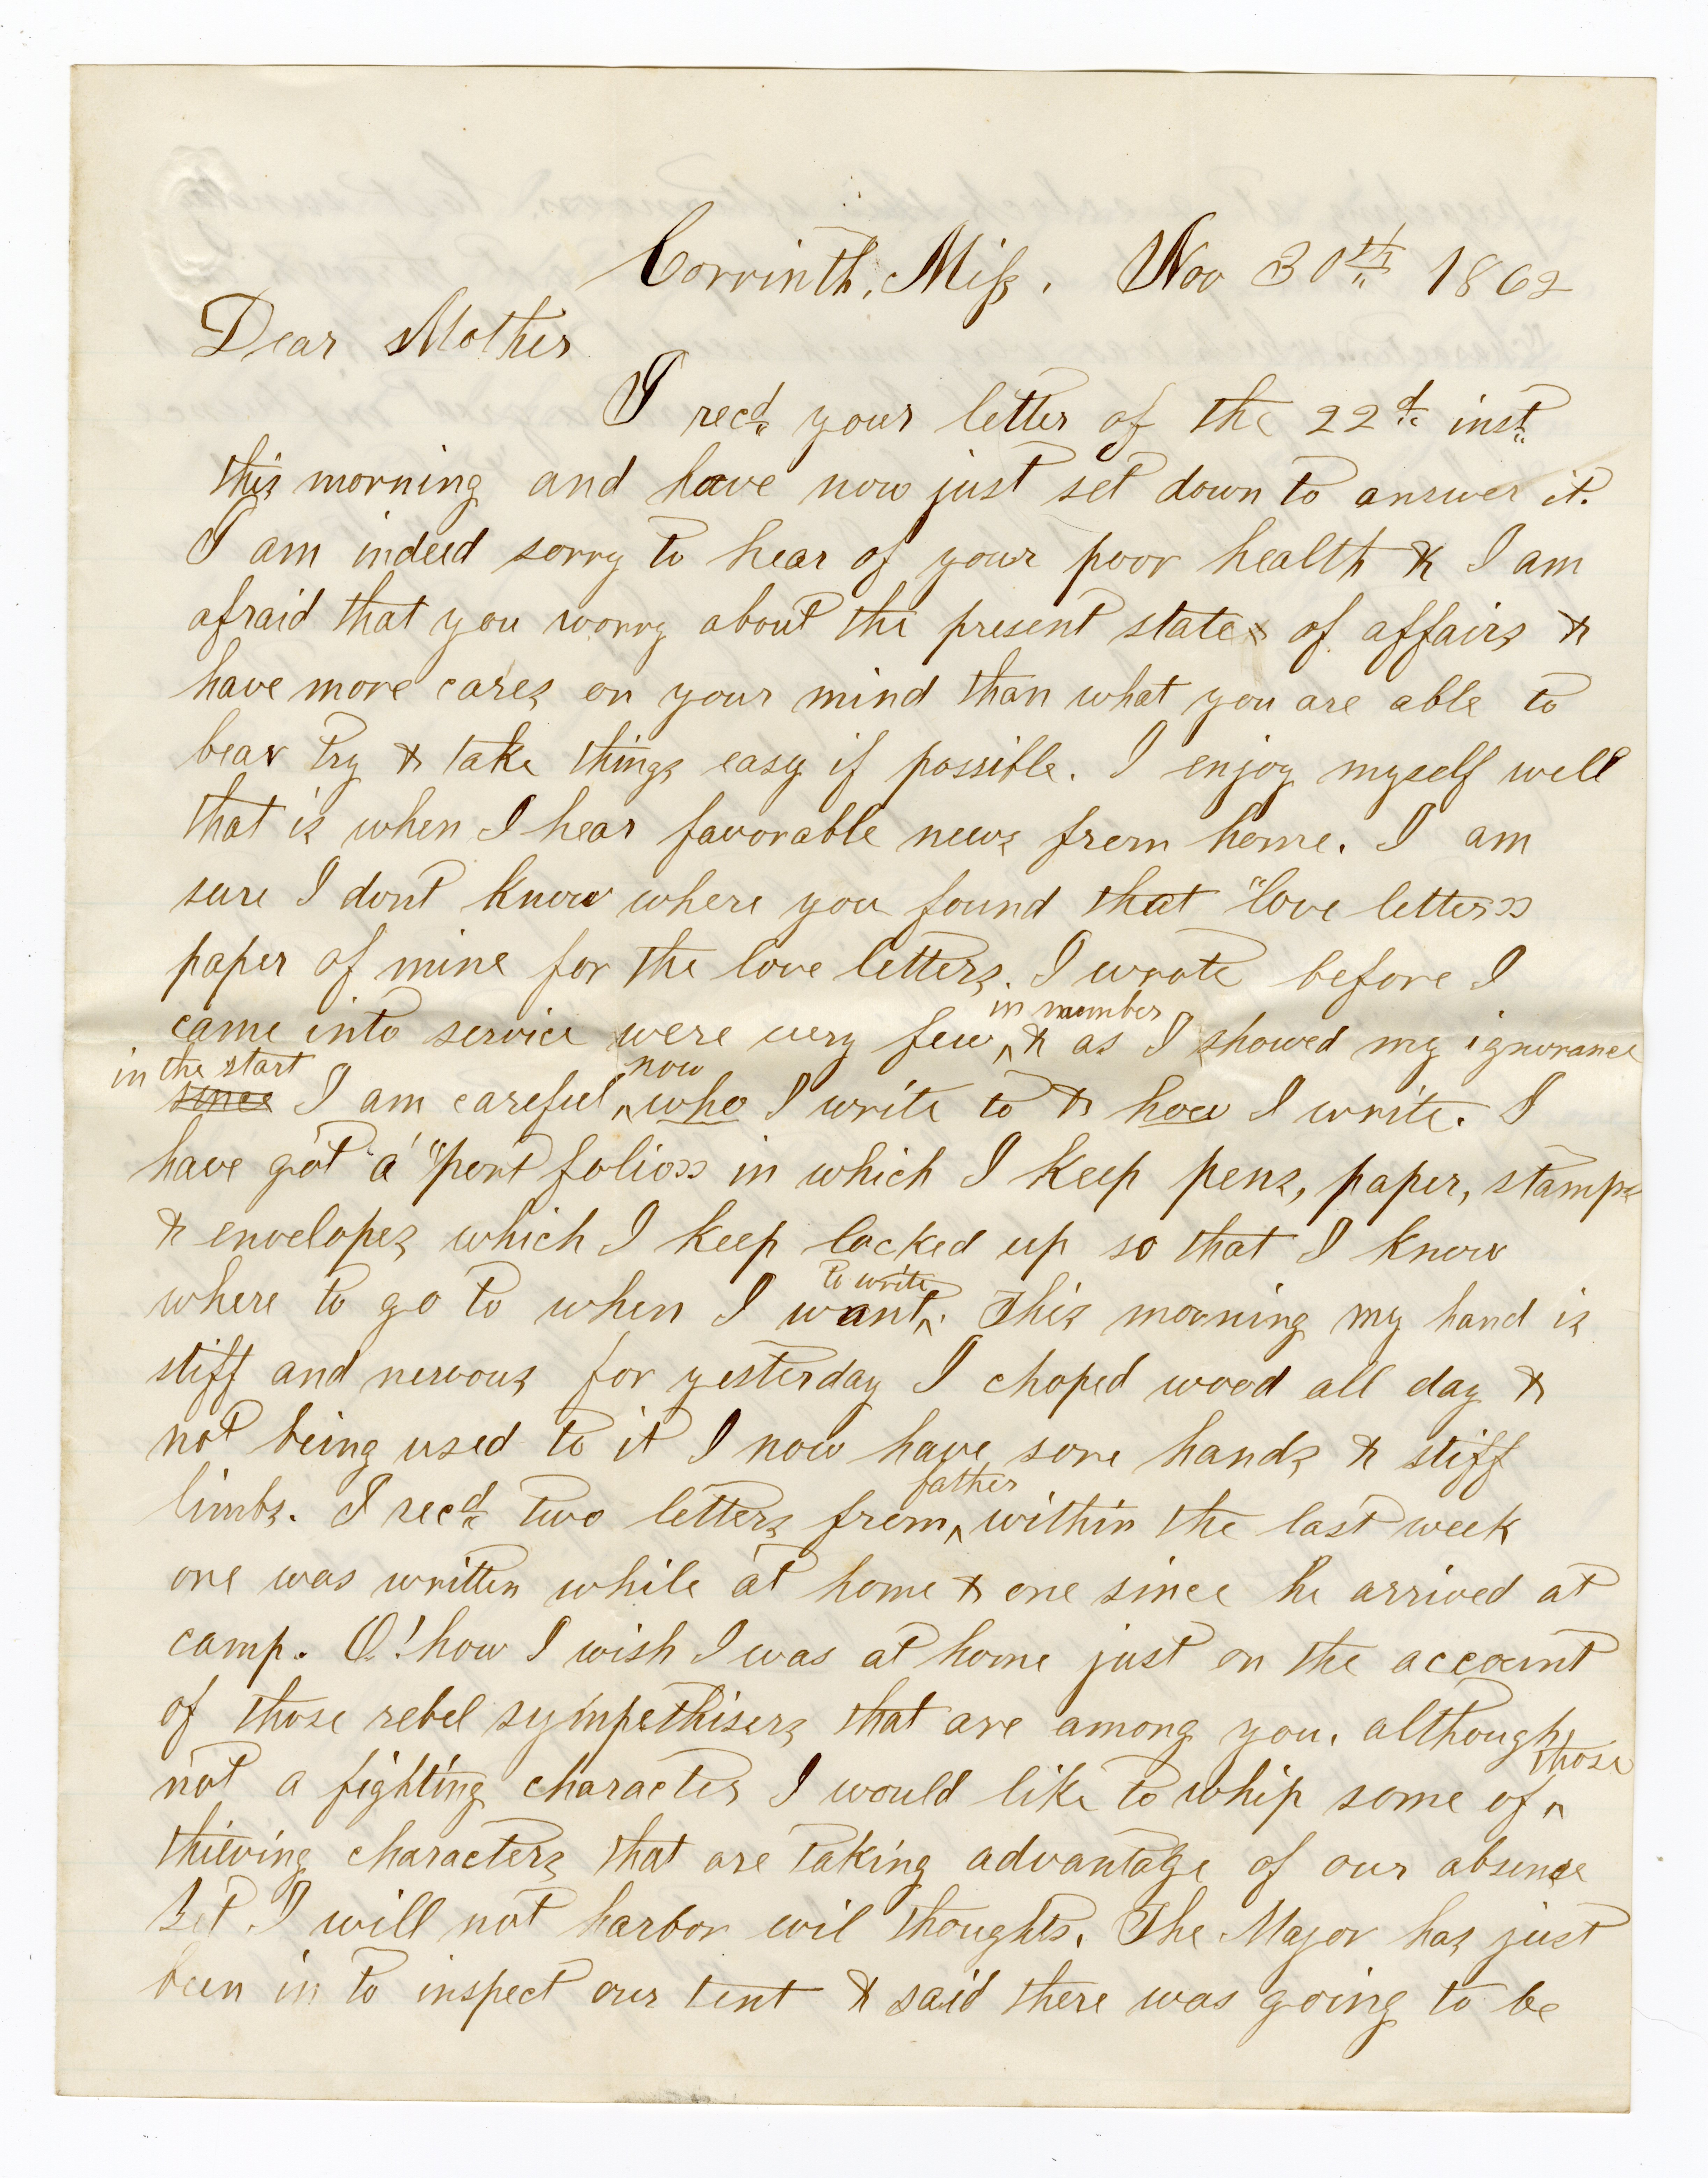 Corrinth, Miss. Nov 30th 1862
Dear Mother
I recd your letter of the 22d inst
this morning and have now just set down to answer it.
I am indeed sorry to hear of your poor health & I am
afraid that you worry about the present state of affairs &
have more cares on your mind than what you are able to
bear try & take things easy if possible. I enjoy myself well
that is when I hear favorable news from home. I am
sure I dont know where you found that "love letter"
paper of mine for the love letters. I wrote before I
came into service were very few in number & as I showed my ignorance
in the start since I am careful now who I write to & how I write. I
have got a "port folio" in which I keep pens, paper, stamps
& envelopes which I keep locked up so that I know
where to go to when I want to write. This morning my hand is
stiff and nervous for yesterday I choped wood all day &
not being used to it I now have sore hands & stiff
limbs. I recd two letters from father within the last week
one was written while at home & one since he arrived at
camp. O! how I wish I was at home just on the account
of those rebel sympethisers that are among you. although
not a fighting character I would like to whip some of those
thieving characters that are taking advantage of our absence
I will not harbor evil thoughts. The Major has just
been in to inspect our tent & said there was going to be